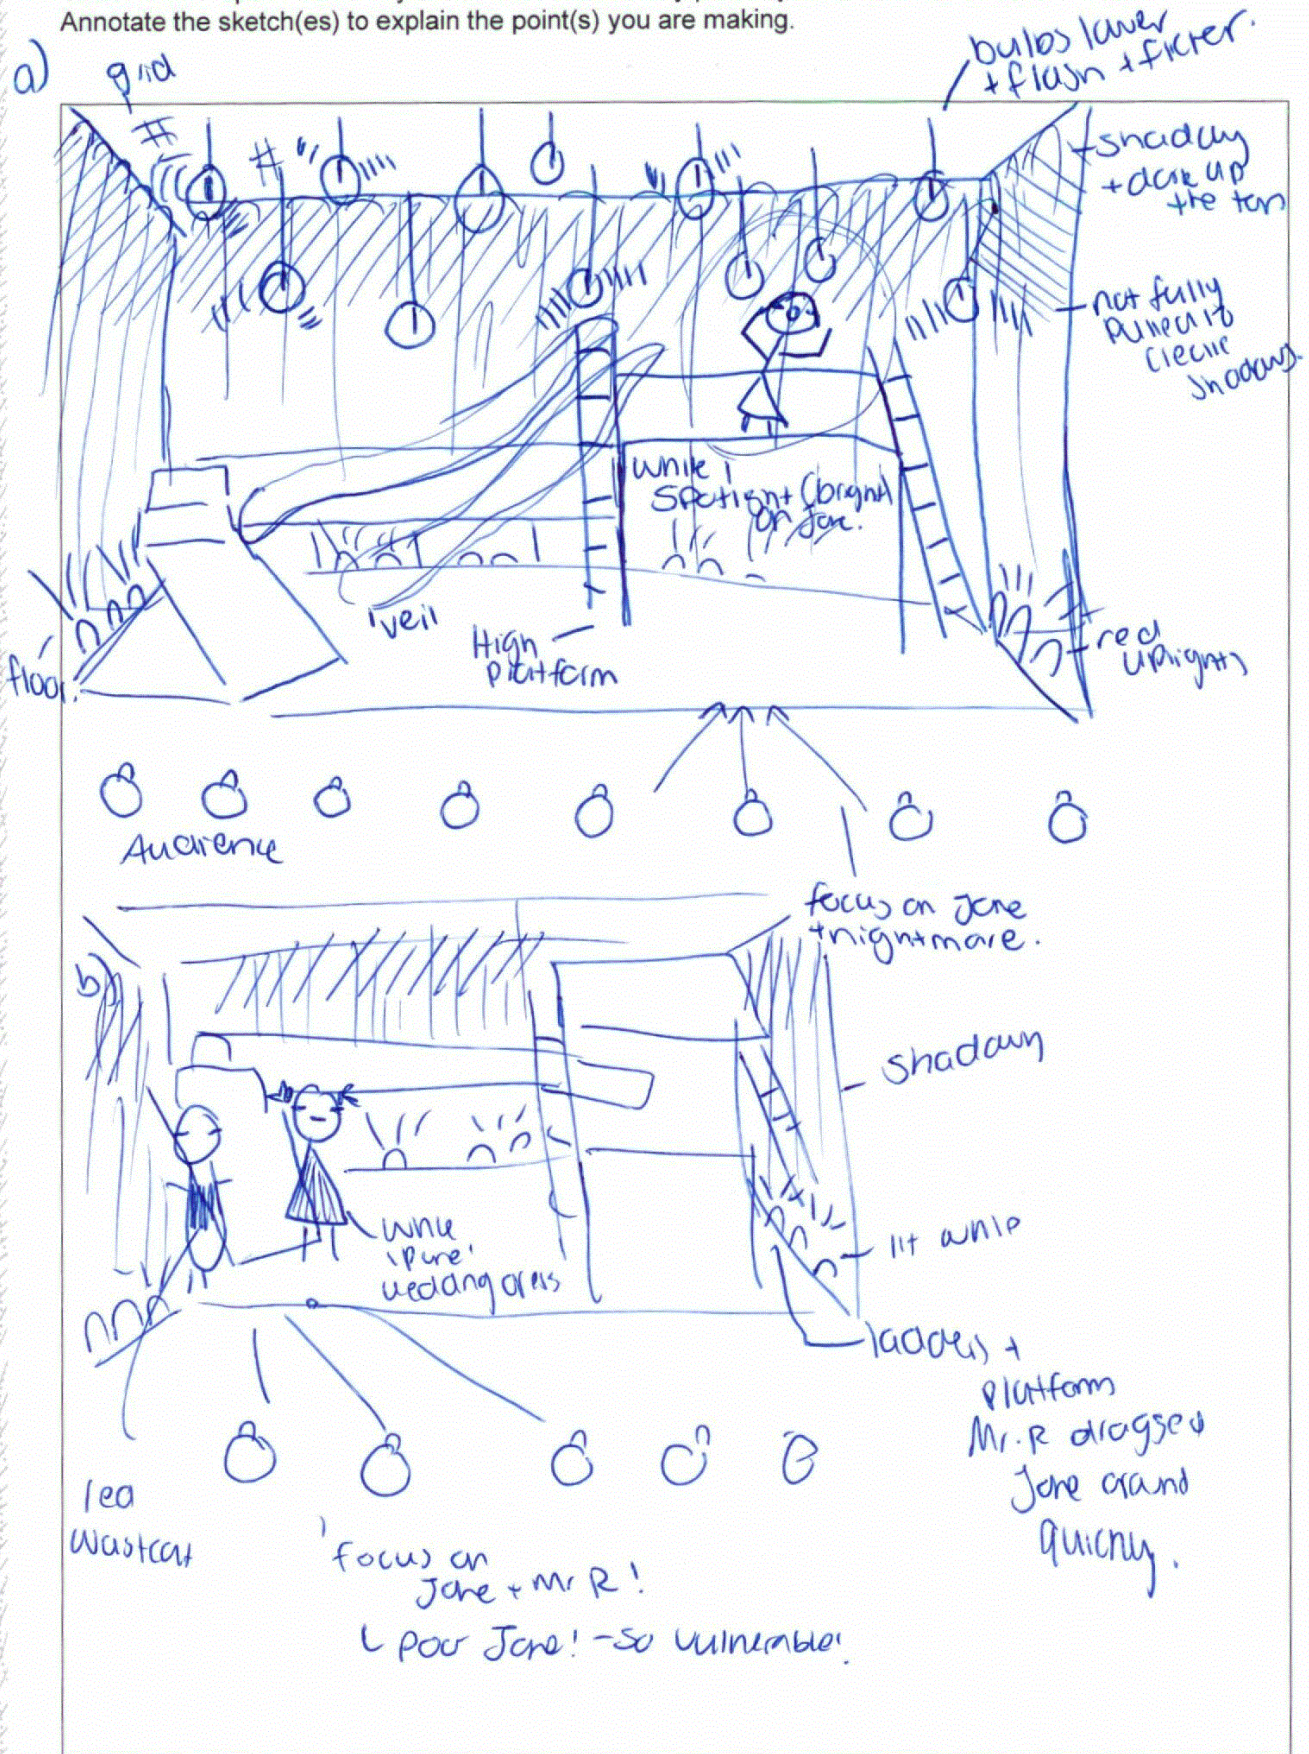 Annotate the sketch(es) to explain the point(s) you are making.
a)
grid
bulbs lower
+ flash + flicker.
shadowy
+ dark up
the top
not fully
pulled to
create
shadows.
white
Spotlight (bright)
on Jane.
'veil
High
platform
floor.
red
uplights
Audience
focus on Jane
+ nightmare.
b)
shadowy
white
'pure'
wedding dress
lit white
ladders +
platform
Mr. R dragged
Jane around
quickly.
red
waistcoat
focus on
Jane + Mr R!
poor Jane! - so vulnerable!